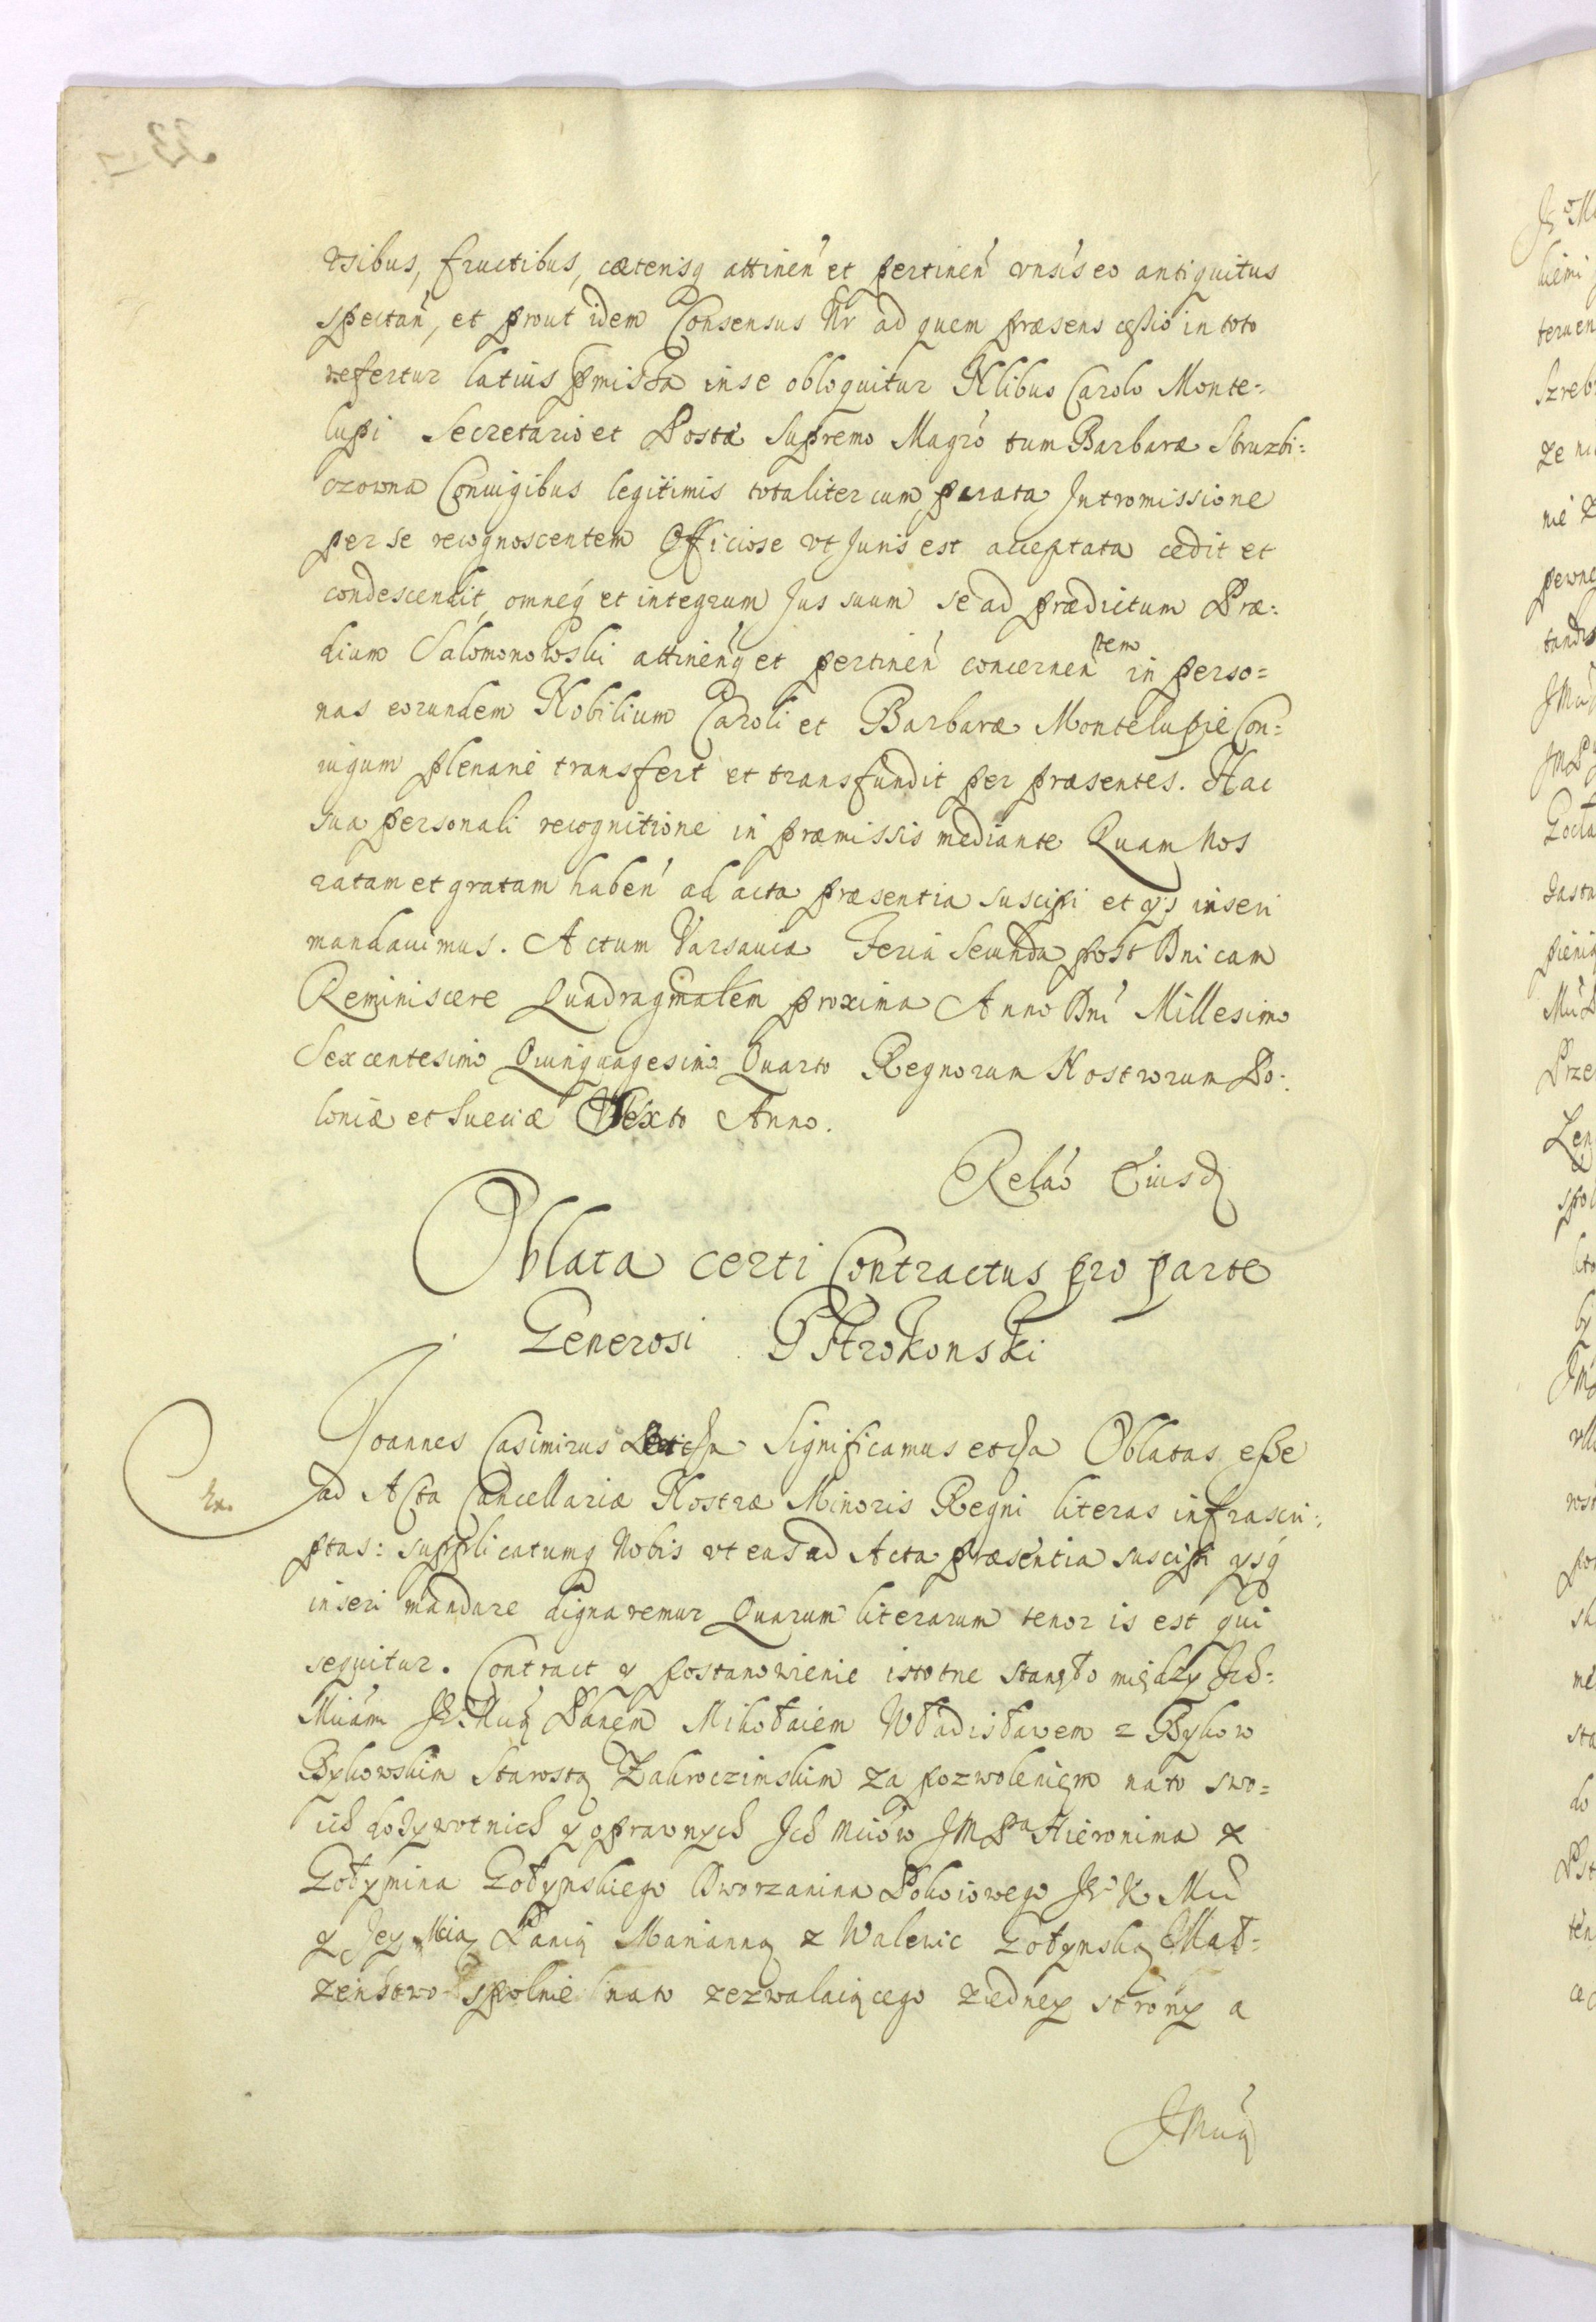 usibus, fructibus, cæterisq attinen et pertinen vnsis eo antiquitus
spectan, et prout idem Consensus Nr ad quem præsens cessio in toto
refertur latius pmissa in se obloquitur Nlibus Carolo Monte=
lupi Secretario et Postæ Supremo Magro tum Barbaræ Struzbi=
czowna Coniugibus legitimis totaliter cum parata Intromissione
per se recognoscentem Officiose vt Juris est acceptata cedit et
condescendit, omneq et integrum Jus suum se ad prædictum Præ=
dium Salomonowski attinenq et pertinen concernen tem in perso=
nas eorundem Nobilium Caroli et Barbaræ Montelupie Con=
iugum plenarie transfert et transfundit per præsentes. Hac
sua personali recognitione in præmissis mediante Quam Nos
ratam et gratam haben ad acta præsentia suscipi et ys inseri
mandauimus. Actum Varsauiæ Feria Secunda post Dnicam
Reminiscere Quadragmalem proxima Anno Dni Millesimo
Sexcentesimo Quinquagesimo Quarto Regnorum Nostrorum Po=
loniæ et Sueciæ Sexto Anno.
Relao Eiusd
Oblata certi Contractus pro parte
Generosi Pstrokonski
Joannes Casimirus Significamus etcha Oblatas esse
ad Acta Cancellariæ Nostræ Minoris Regni literas infrascri=
ptas: supplicatumq Nobis vt eas ad Acta præsentia suscipi ysq
inseri mandare dignaremur Quarum literarum tenor is est qui
sequitur. Contract y postanowienie istotne stanęło między Ich=
Mciami Je°Mcią Panem Mikołaiem Władisławem z Bykow
Bykowskim Starostą Zakroczimskim za pozwoleniem na to swo=
ich dożywotnich y oprawnych Ich Mciow JMPa Hieronima z
Gołymina Gołynskiego Dworzanina Pokoiowego Je° K Mci
y Jey Mcią Panią Marianną z Walewic Gołynską Mał=
żeństwo spolnie na to zezwalaiącego z iedney strony a
JMcią